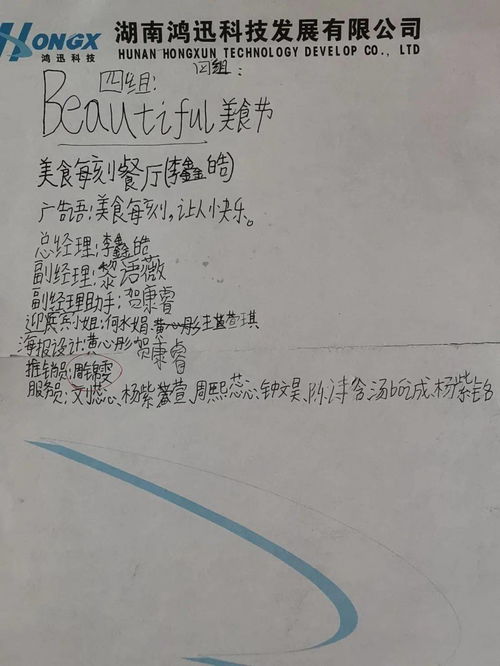 HONGX 湖南鸿迅科技发展有限公司
鸿迅科技 HUNAN HONGXUN TECHNOLOGY DEVELOP CO., LTD
四组: 四组:
Beautiful 美食节
美食每刻餐厅(李鑫皓)
广告语:美食每刻,让人快乐。
总经理:李鑫皓
副经理:黎语薇
副经理助手:贺康睿
迎宾小姐:何水娟、黄心彤 王萱琪
海报设计:黄心彤 贺康睿
推销员:周雯
服务员:刘蕊心、杨紫萱、周熙蕊心、钟文昊、陈诗含、汤bo成、杨紫铭